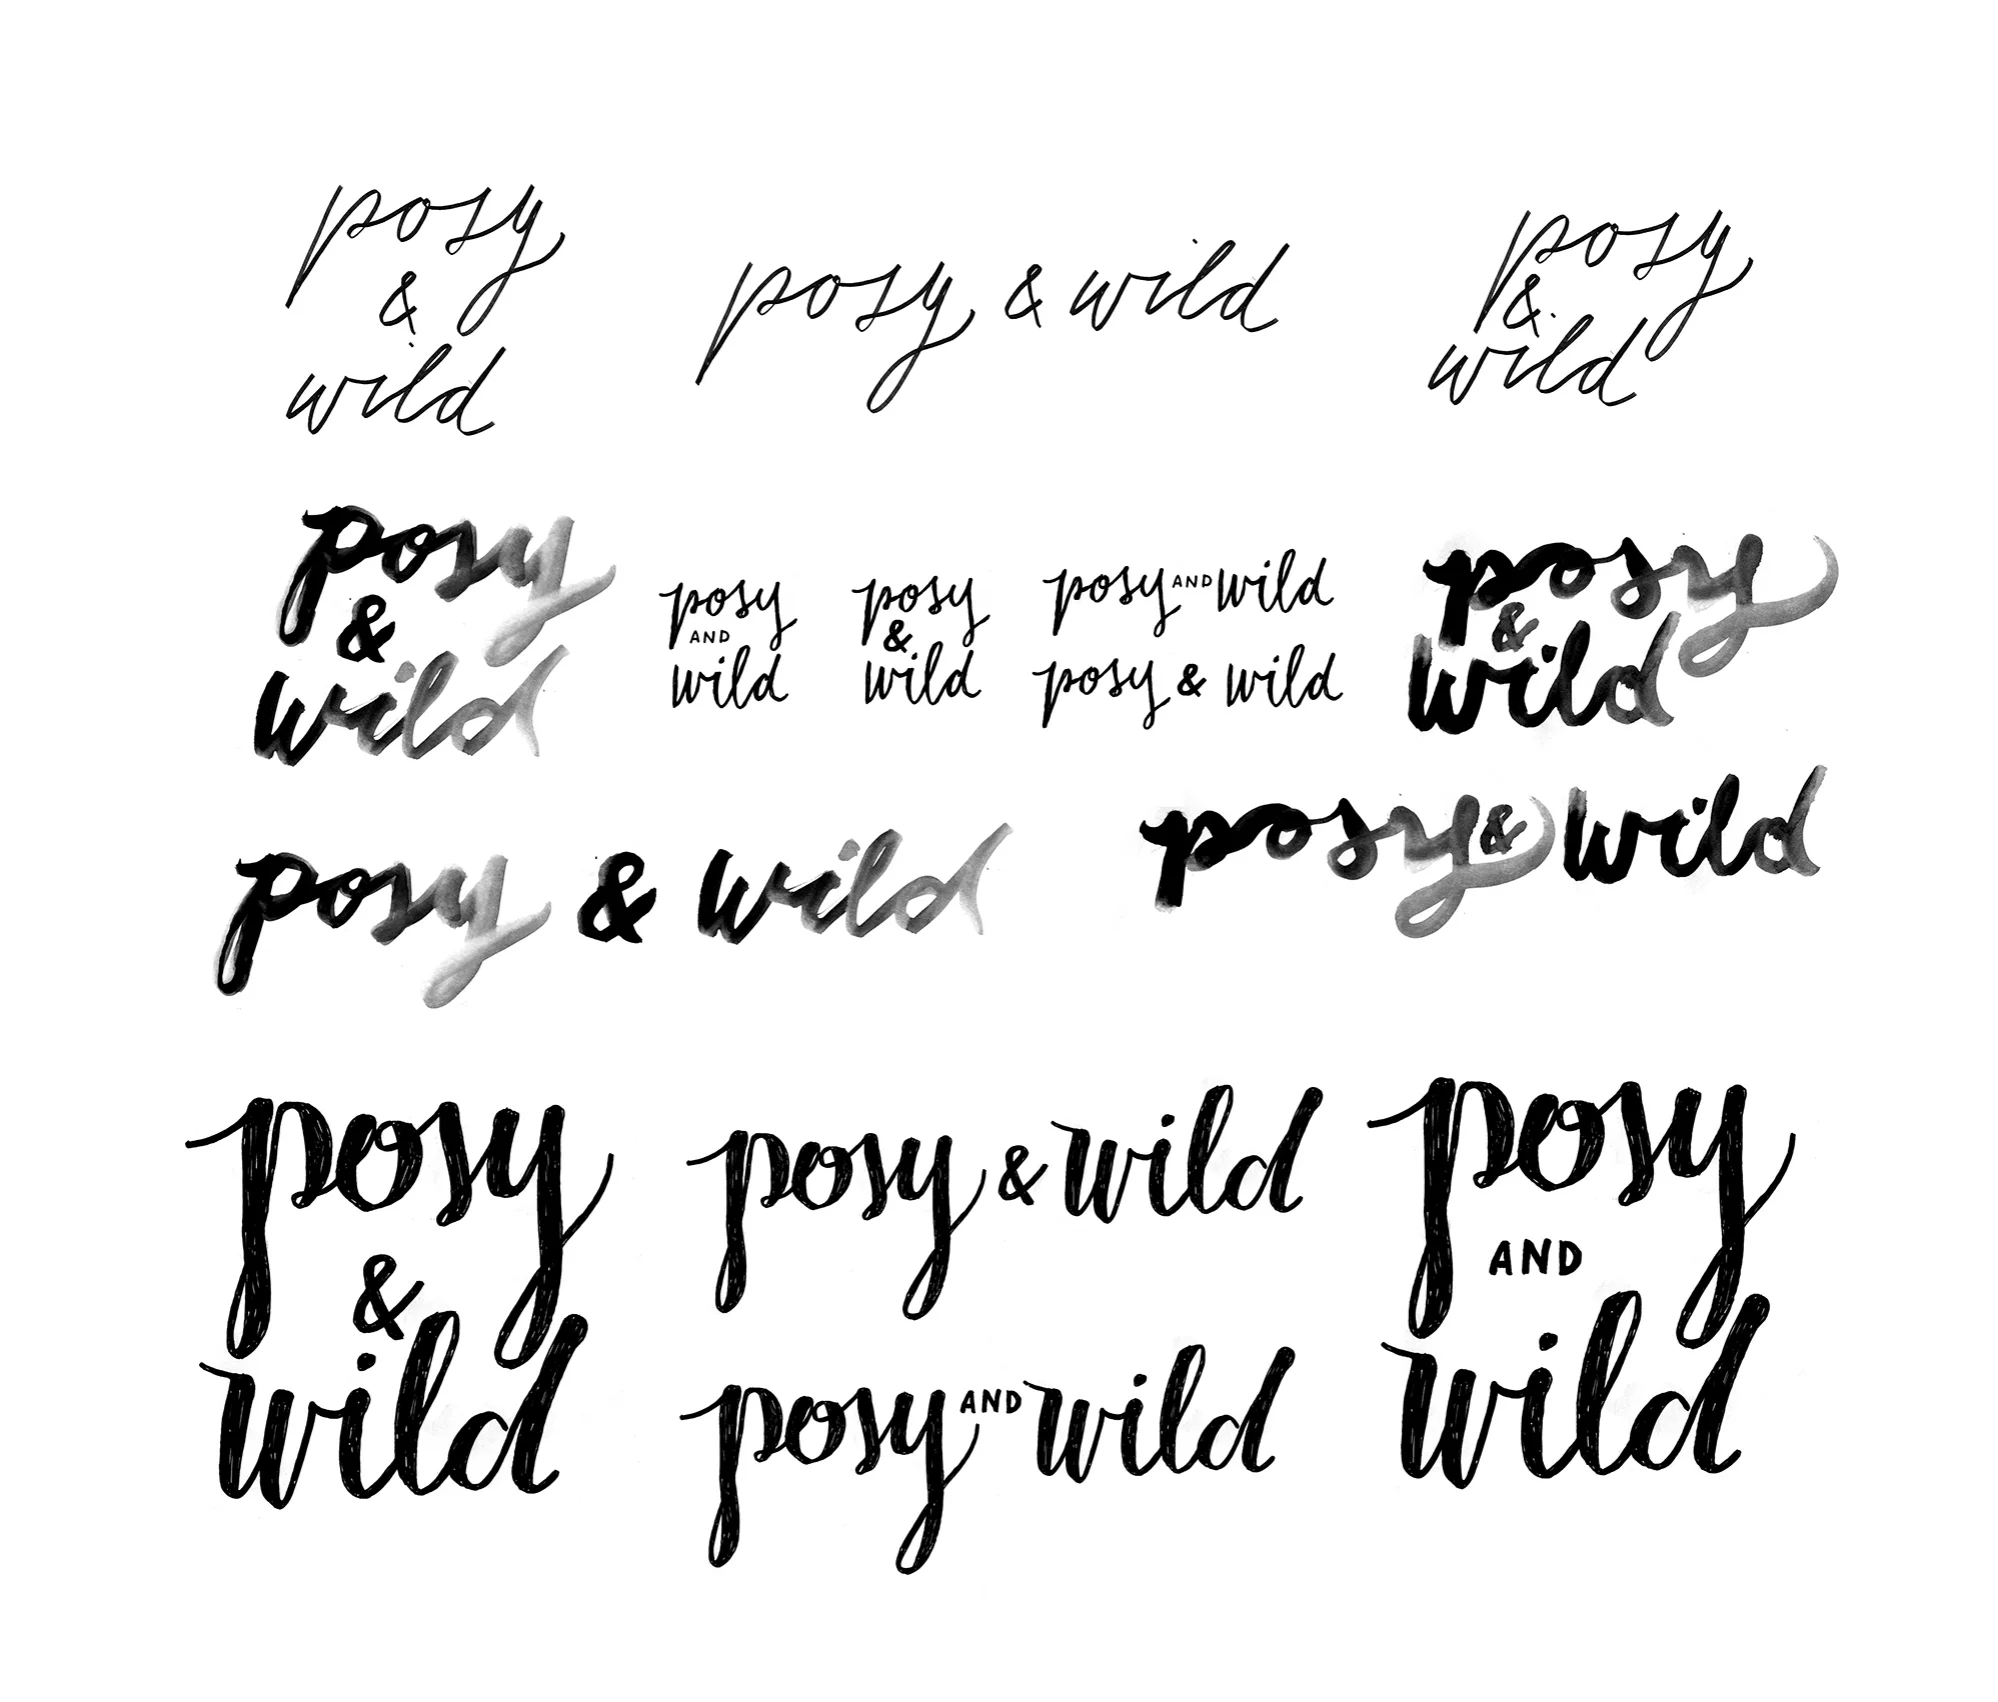 posy
&
wild
posy & wild
posy
&
wild
posy
&
wild
posy
AND
wild
posy
&
wild
posy AND wild
posy & wild
posy
&
wild
posy & wild
posy & wild
posy
&
wild
posy & wild
posy AND wild
posy
AND
wild